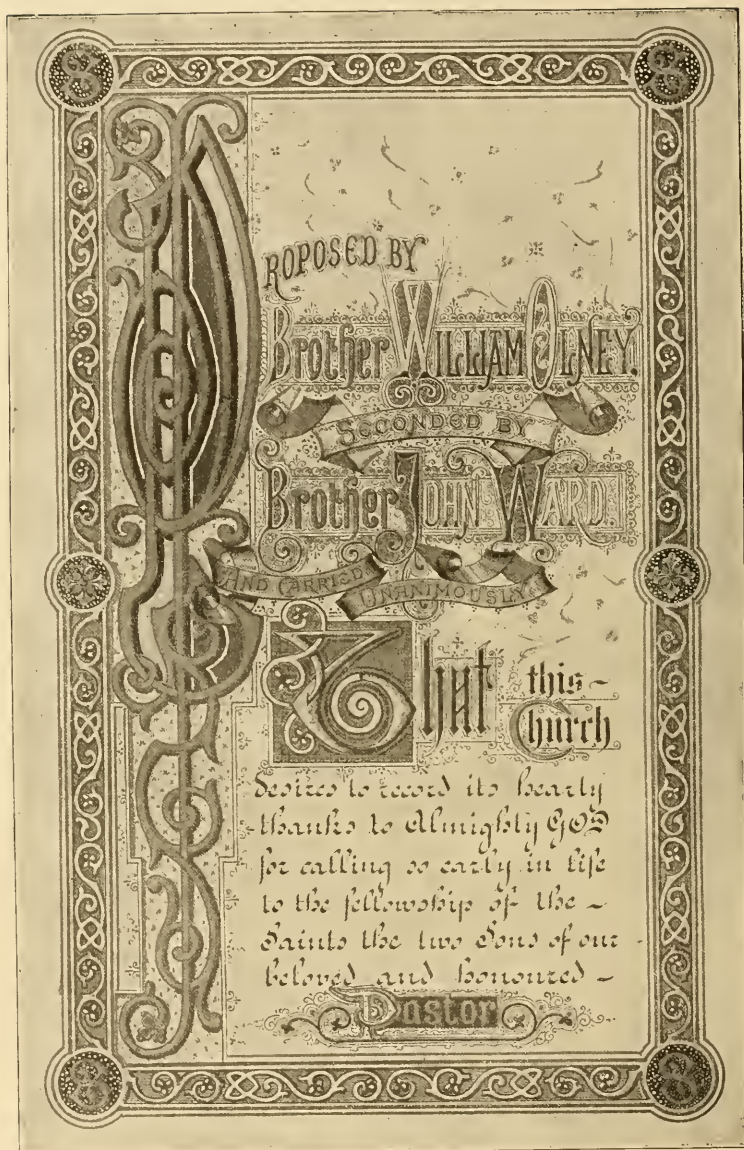 PROPOSED BY
Brother WILLIAM OLNEY.
SECONDED BY
Brother JOHN WARD.
AND CARRIED UNANIMOUSLY
That this ~
Church
desires to record its hearty
thanks to Almighty GOD
for calling so early in life
to the fellowship of the ~
Saints the two Sons of our
beloved and honoured ~
Pastor